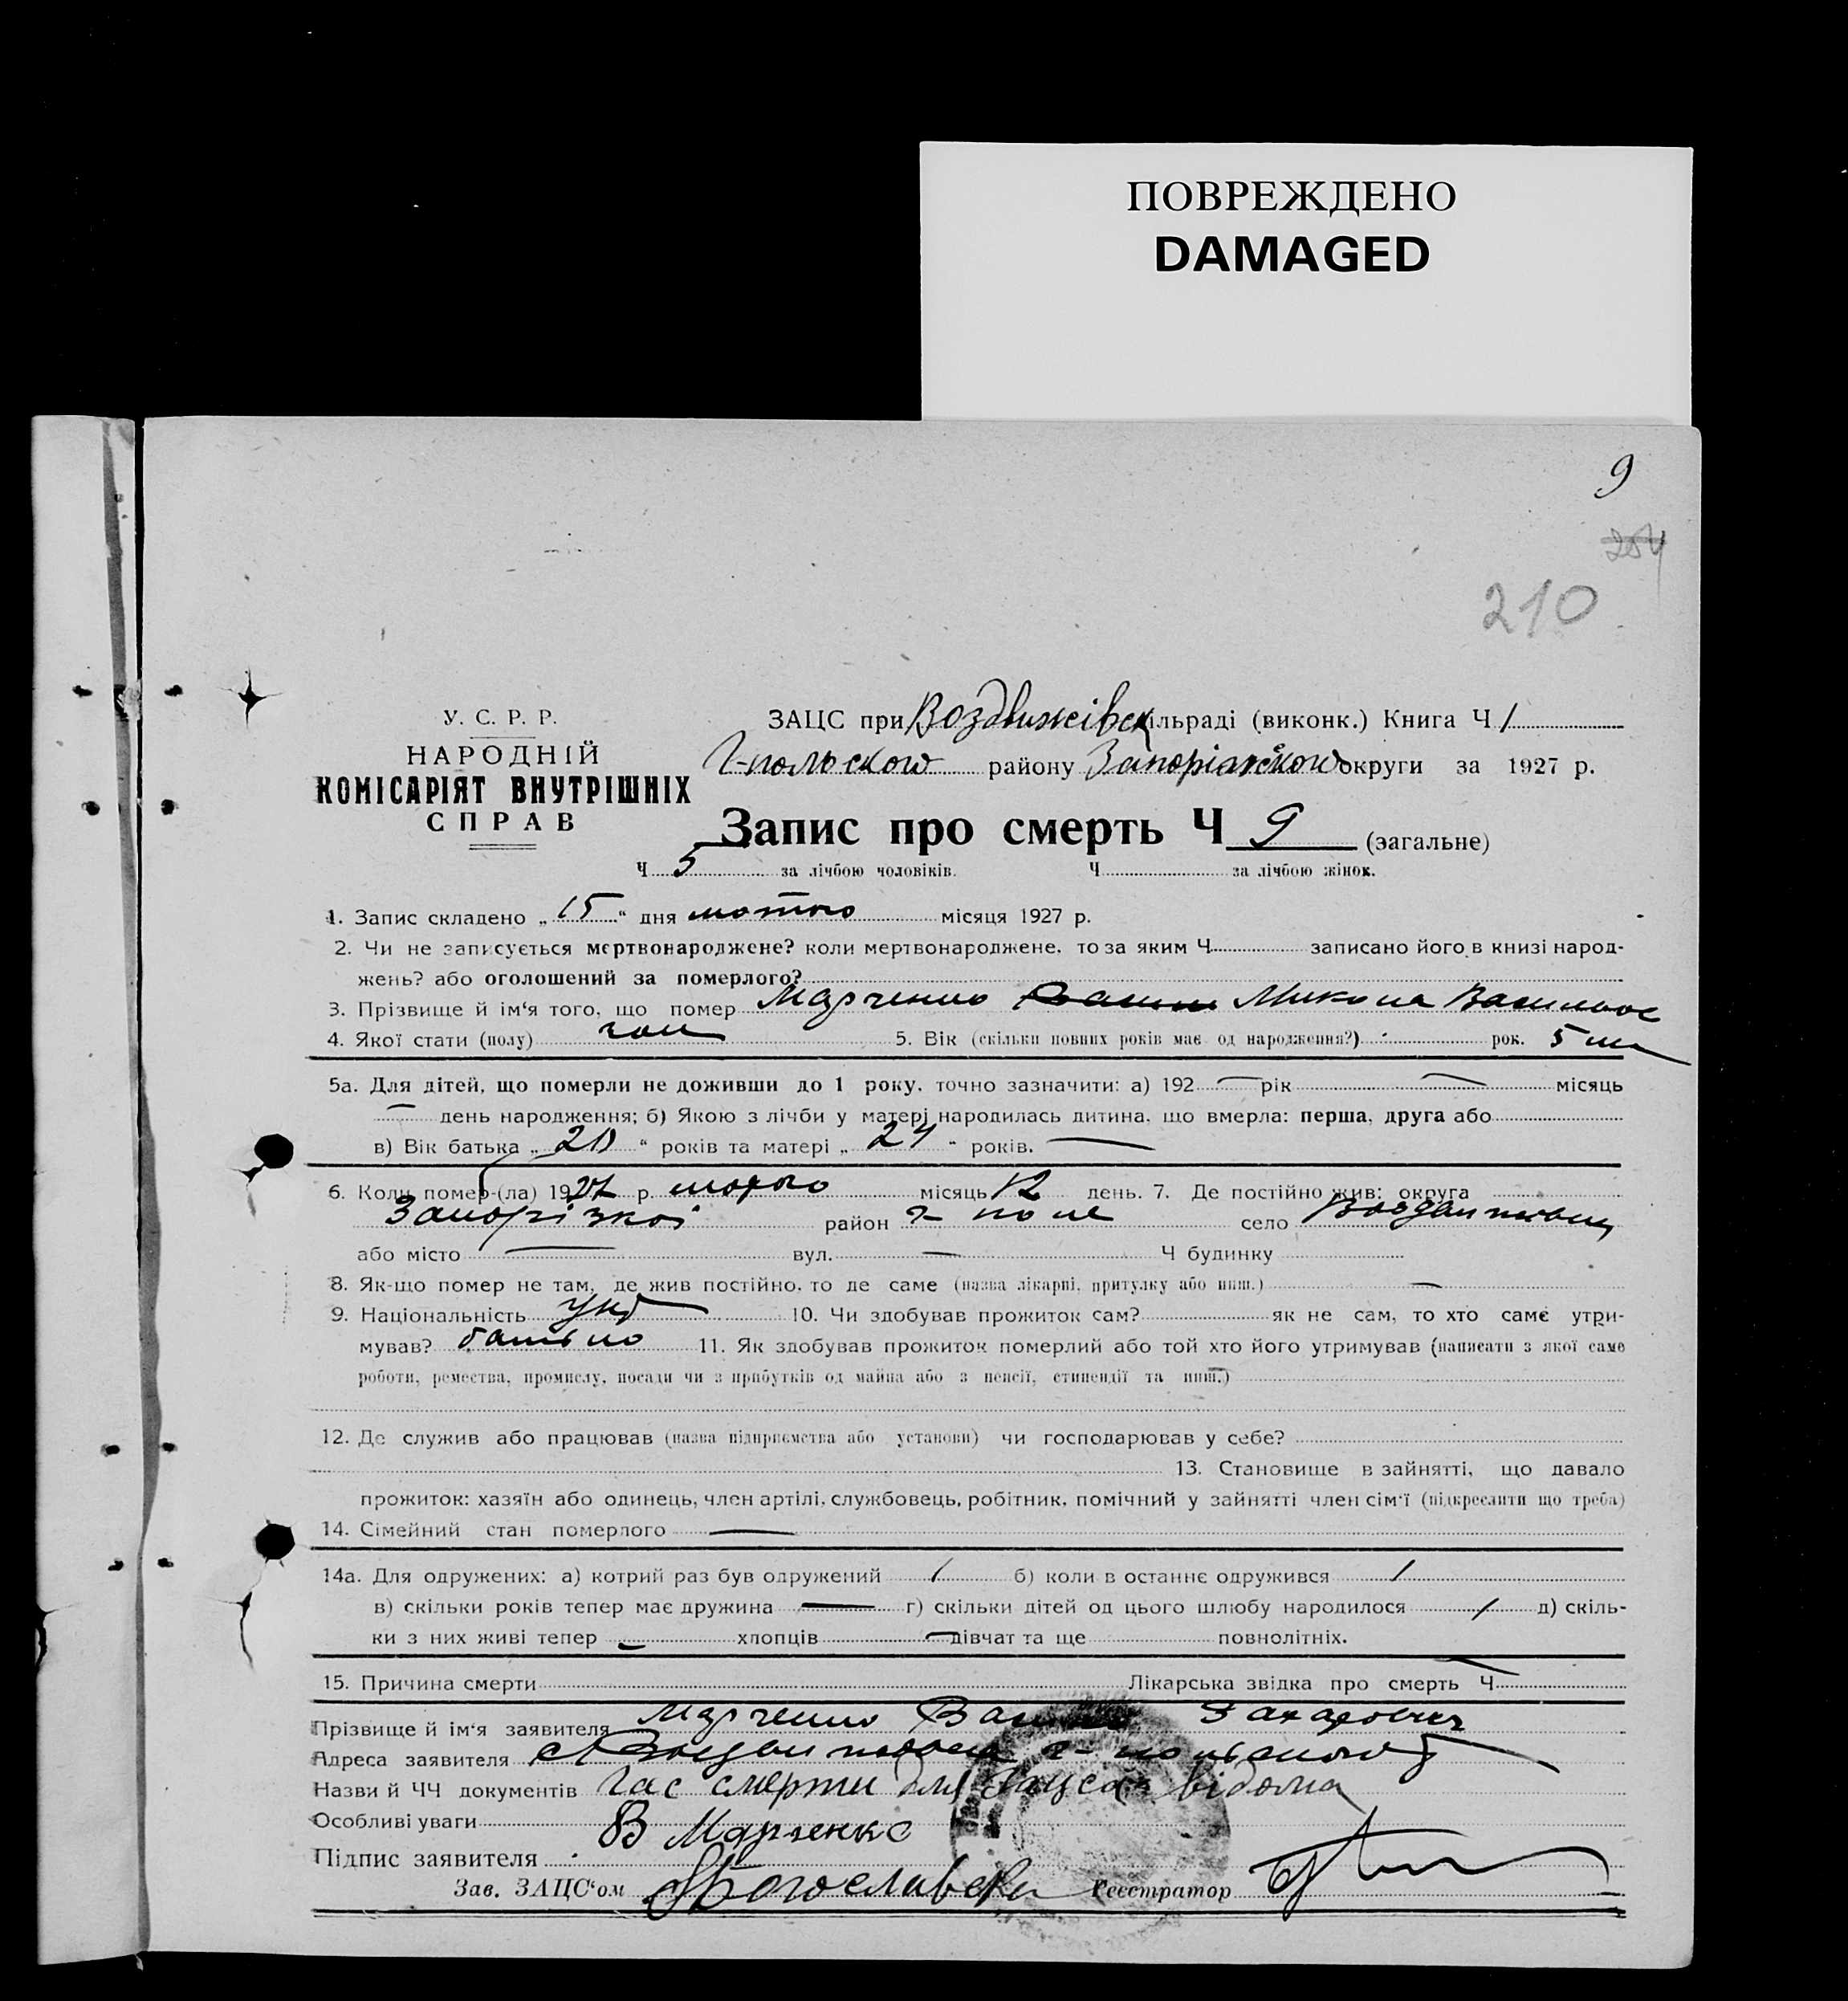 ПОВРЕЖДЕНО
DAMAGED
9
254
210
У. С. Р. Р.
НАРОДНІЙ
КОМІСАРІЯТ ВНУТРІШНІХ
СПРАВ
ЗАЦС при Воздвижівск сільраді (виконк.) Книга Ч 1
Г-польского району Запоріжского округи за 1927 р.
Запис про смерть Ч 9 (загальне)
Ч 5 за лічбою чоловіків. Ч за лічбою жінок.
1. Запис складено „ 15 “ дня лютого місяця 1927 р.
2. Чи не записується мертвонароджене? коли мертвонароджене, то за яким Ч записано його в книзі народ-
жень? або оголошений за померлого?
3. Прізвище й ім‘я того, що помер Марченко Микола Васильов
4. Якої стати (полу) чол 5. Вік (скільки повних років має од народження?) рок. 5
5а. Для дітей, що померли не доживши до 1 року, точно зазначити: а) 192 — рік — місяць
— день народження; б) Якою з лічби у матері народилась дитина, що вмерла: перша, друга або
в) Вік батька „ “ років та матері „ 24 “ років. —
6. Коли помер-(ла) 1927 р. лютого місяць 12 день. 7. Де постійно жив: округа
Запорізкої район Г-поле село
або місто — вул. — Ч будинку
8. Як-що помер не там, де жив постійно, то де саме (назва лікарні, притулку або инш.) —
9. Національність укр 10. Чи здобував прожиток сам? як не сам, то хто саме утри-
мував? батько 11. Як здобував прожиток померлий або той хто його утримував (написати з якої саме
роботи, ремества, промислу, посади чи з прибутків од майна або з пенсії, стипендії та инш.)
12. Де служив або працював (назва підприємства або установи) чи господарював у себе?
13. Становище в зайнятті, що давало
прожиток: хазяїн або одинець, член артілі, службовець, робітник, помічний у зайнятті член сім‘ї (підкреслити що треба)
14. Сімейний стан померлого —
14а. Для одружених: а) котрий раз був одружений / б) коли в останнє одружився /
в) скільки років тепер має дружина — г) скільки дітей од цього шлюбу народилося / д) скіль-
ки з них живі тепер — хлопців — дівчат та ще повнолітніх.
15. Причина смерти Лікарська звідка про смерть Ч —
Прізвище й ім‘я заявителя Марченко Захарович
Адреса заявителя
Назви й ЧЧ документів Час смерти для Зацса відома
Особливі уваги
Підпис заявителя В Марченко
Зав. ЗАЦС‘ом Реєстратор